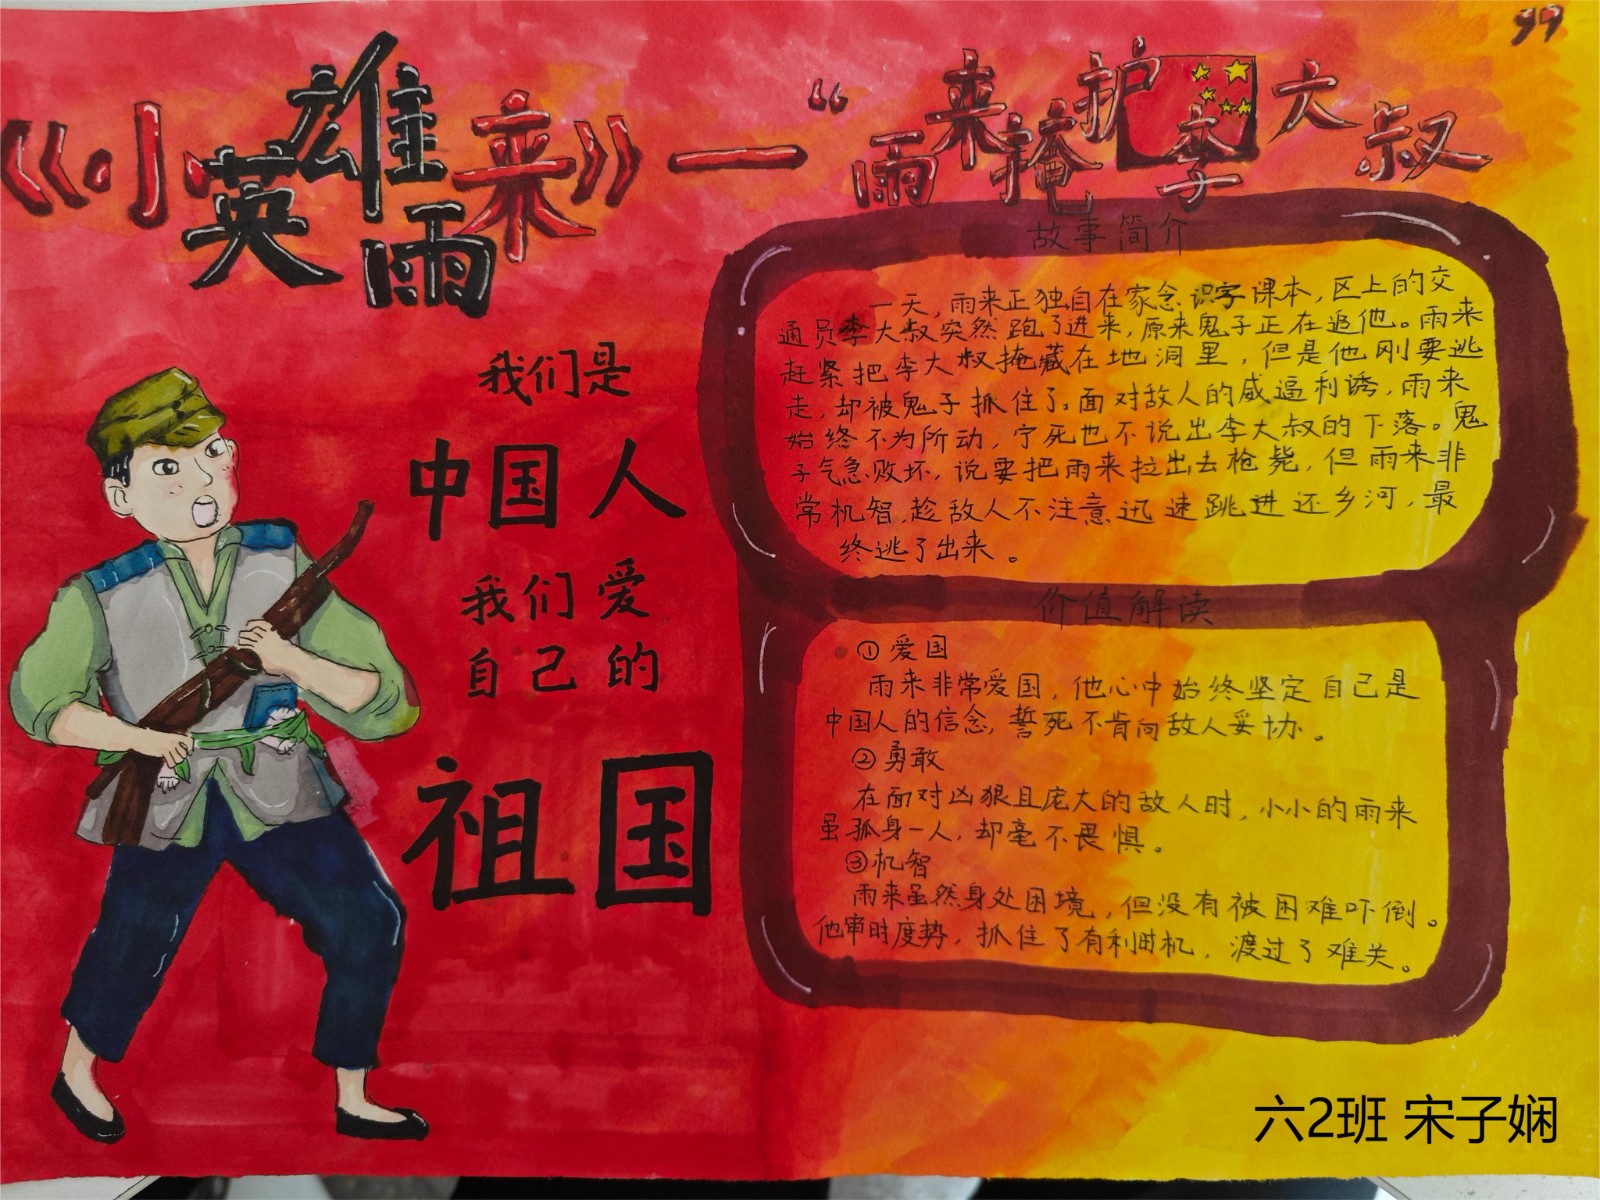 99
《小英雄雨来》—“雨来掩护李大叔
我们是
中国人
我们爱
自己的
祖国
故事简介
一天，雨来正独自在家念识字课本，区上的交
通员李大叔突然跑了进来，原来鬼子正在追他。雨来
赶紧把李大叔掩藏在地洞里，但是他刚要逃
走，却被鬼子抓住了。面对敌人的威逼利诱，雨来
始终不为所动，宁死也不说出李大叔的下落。鬼
子气急败坏，说要把雨来拉出去枪毙，但雨来非
常机智，趁敌人不注意迅速跳进还乡河，最
终逃了出来。
价值解读
①爱国
雨来非常爱国，他心中始终坚定自己是
中国人的信念，誓死不肯向敌人妥协。
②勇敢
在面对凶狠且庞大的敌人时，小小的雨来
虽孤身一人，却毫不畏惧。
③机智
雨来虽然身处困境，但没有被困难吓倒。
他审时度势，抓住了有利时机，渡过了难关。
六2班 宋子娴